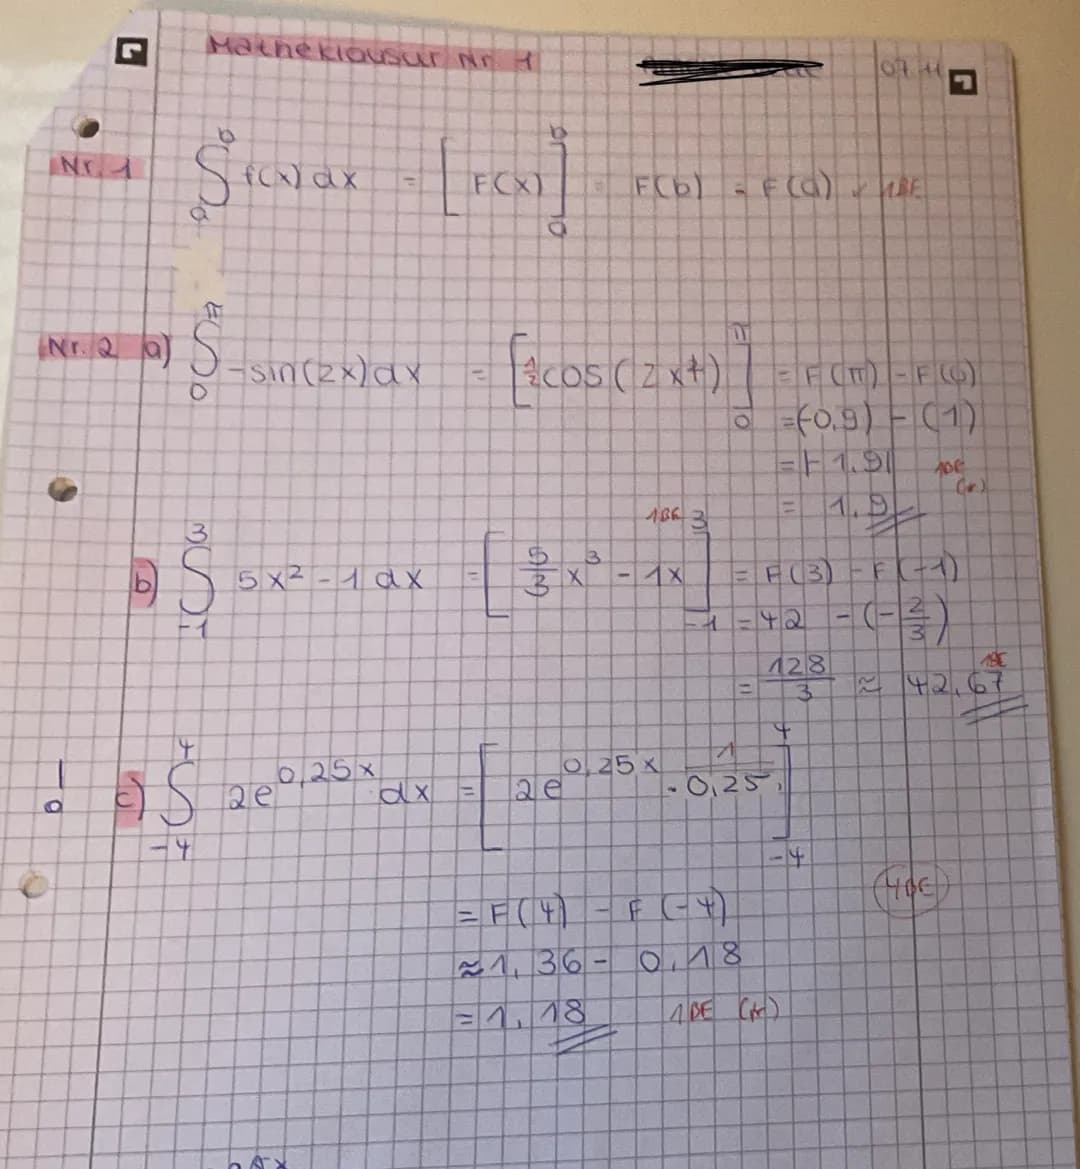 Matheklausur Nr. 1 07.11
Nr. 1 ∫_a^b f(x) dx = [F(x)]_a^b = F(b) - F(a) ✓ 1BE
Nr. 2 a) ∫_0^π -sin(2x) dx = [½cos(2x)]_0^π = F(π) - F(0)
=(-0,9) - (1)
=|-1,9| 1BE
= 1,9 (r)
1BE
b) ∫_-1^3 5x² - 1 dx = [5/3 x³ - 1x]_-1^3 = F(3) - F(-1)
= 42 - (-2/3)
= 128/3 ≈ 42,67 1BE
! c) ∫_-4^4 2e^0,25x dx = [2e^0,25x · 1/0,25]_-4^4
= F(4) - F(-4) 4BE
≈ 1,36 - 0,18
= 1,18 1BE